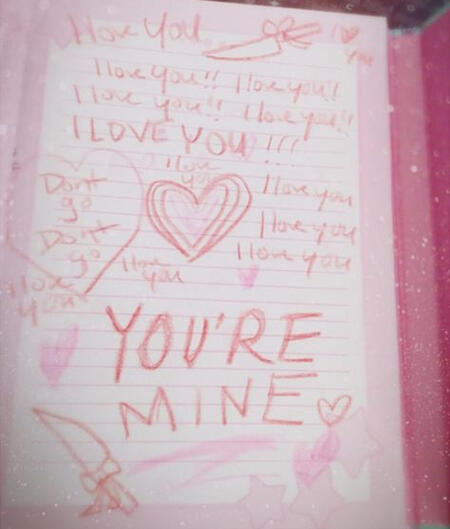 I love You
I ♡
you
I love you!! I love you!!
I love you!! I love you!!
I LOVE YOU!!!
I love
you
I love you
Don't
go
I love you
Don't
go
I love you
I love
you
I love
you
YOU'RE
MINE